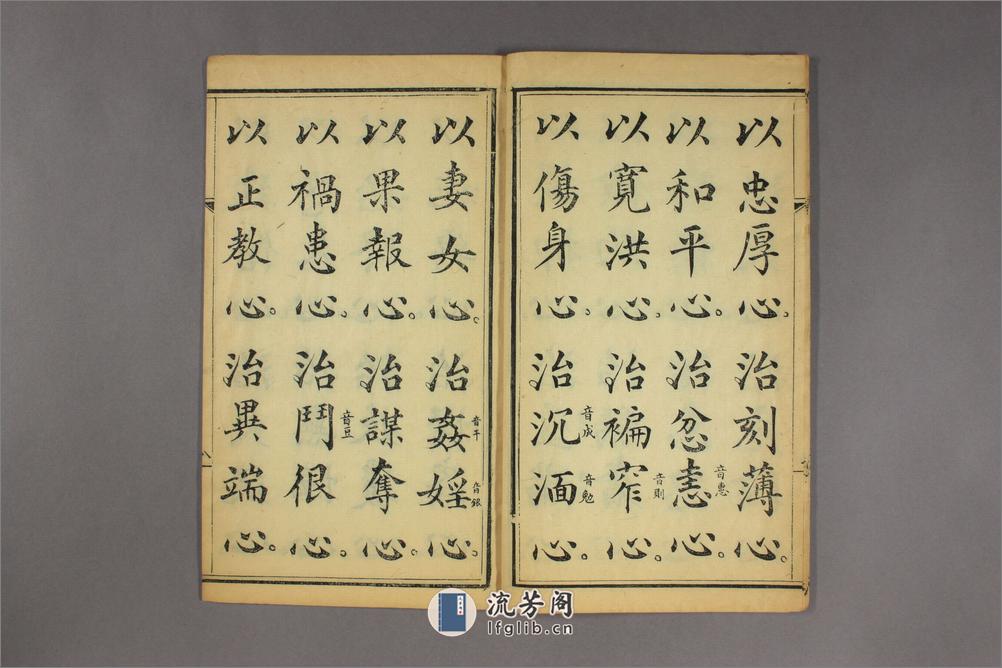 以忠厚心。治刻薄心。
以和平心。治忿恚心。
音惠
以寬洪心。治褊窄心。
音則
以傷身心。治沉湎心。
音成
音勉
以妻女心。治姦婬心。
音干
音銀
以果報心。治謀奪心。
以禍患心。治鬥很心。
音豆
以正教心。治異端心。
流芳阁
lfglib.cn